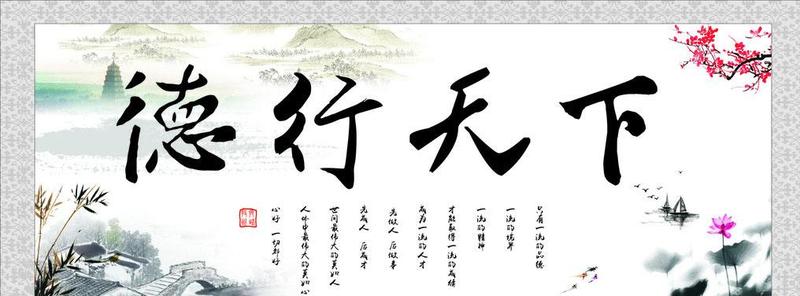 德行天下
只有一流的品德
一流的境界
一流的精神
才能取得一流的成绩
成为一流的人才
先做人 后做事
先成人 后成才
世间最伟大的莫如人
人体中最伟大的莫如心
心好 一切都好